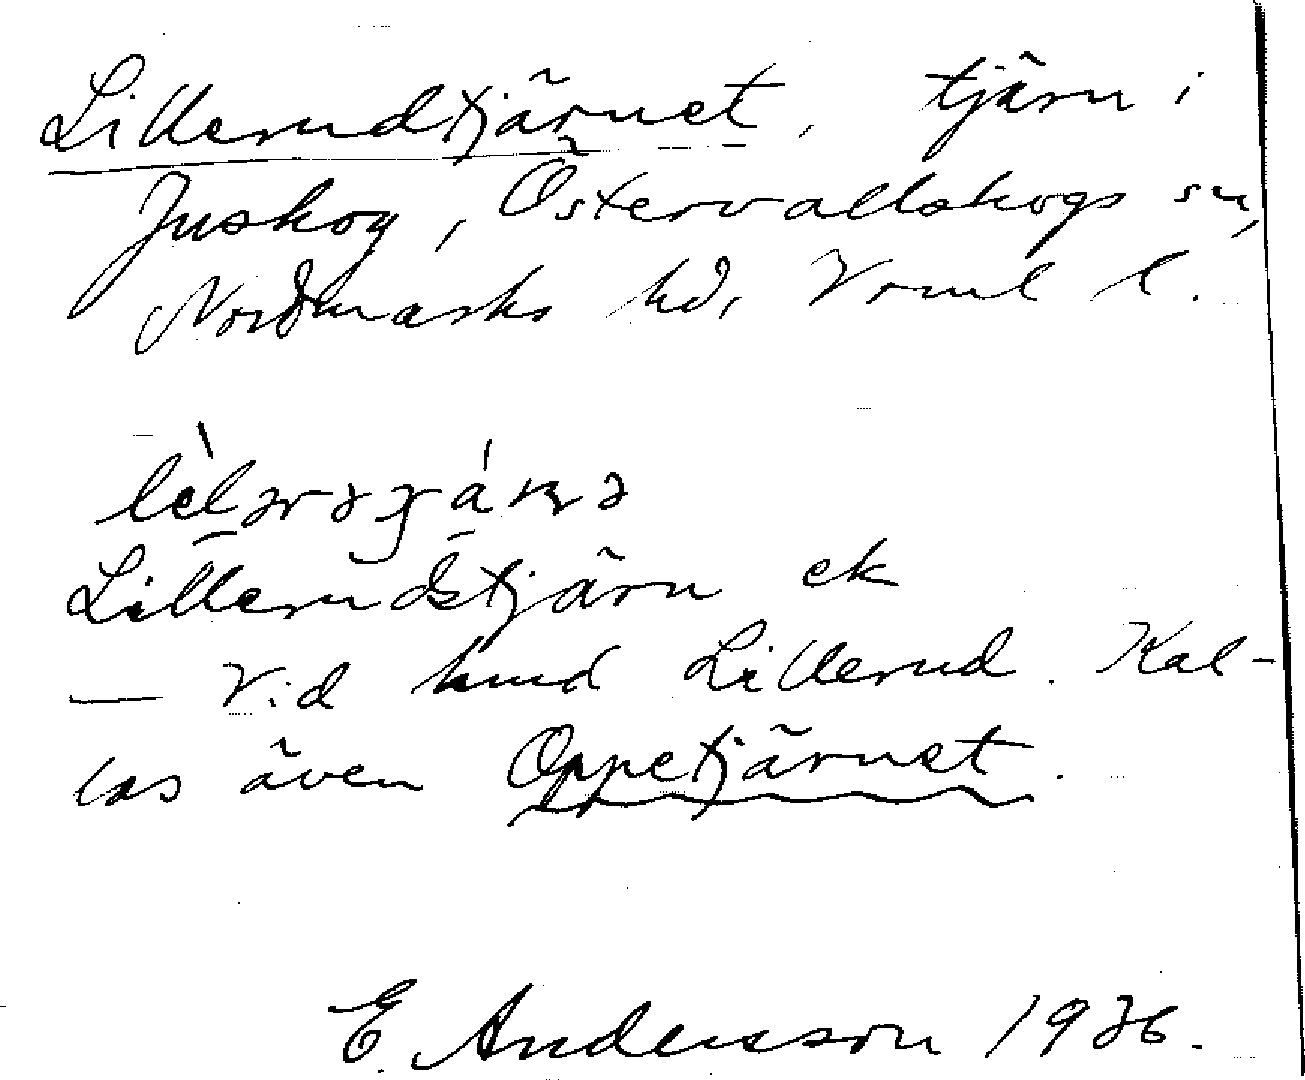 Lillerudtjärnet, tjärn i
Juskog, Östervallskogs sn,
Nordmarks hd, Vrml l.
Lillerudstjärn ek
— Vid hmd Lillerud. Kal-
las även Oppetjärnet.
E. Andersson 1936.